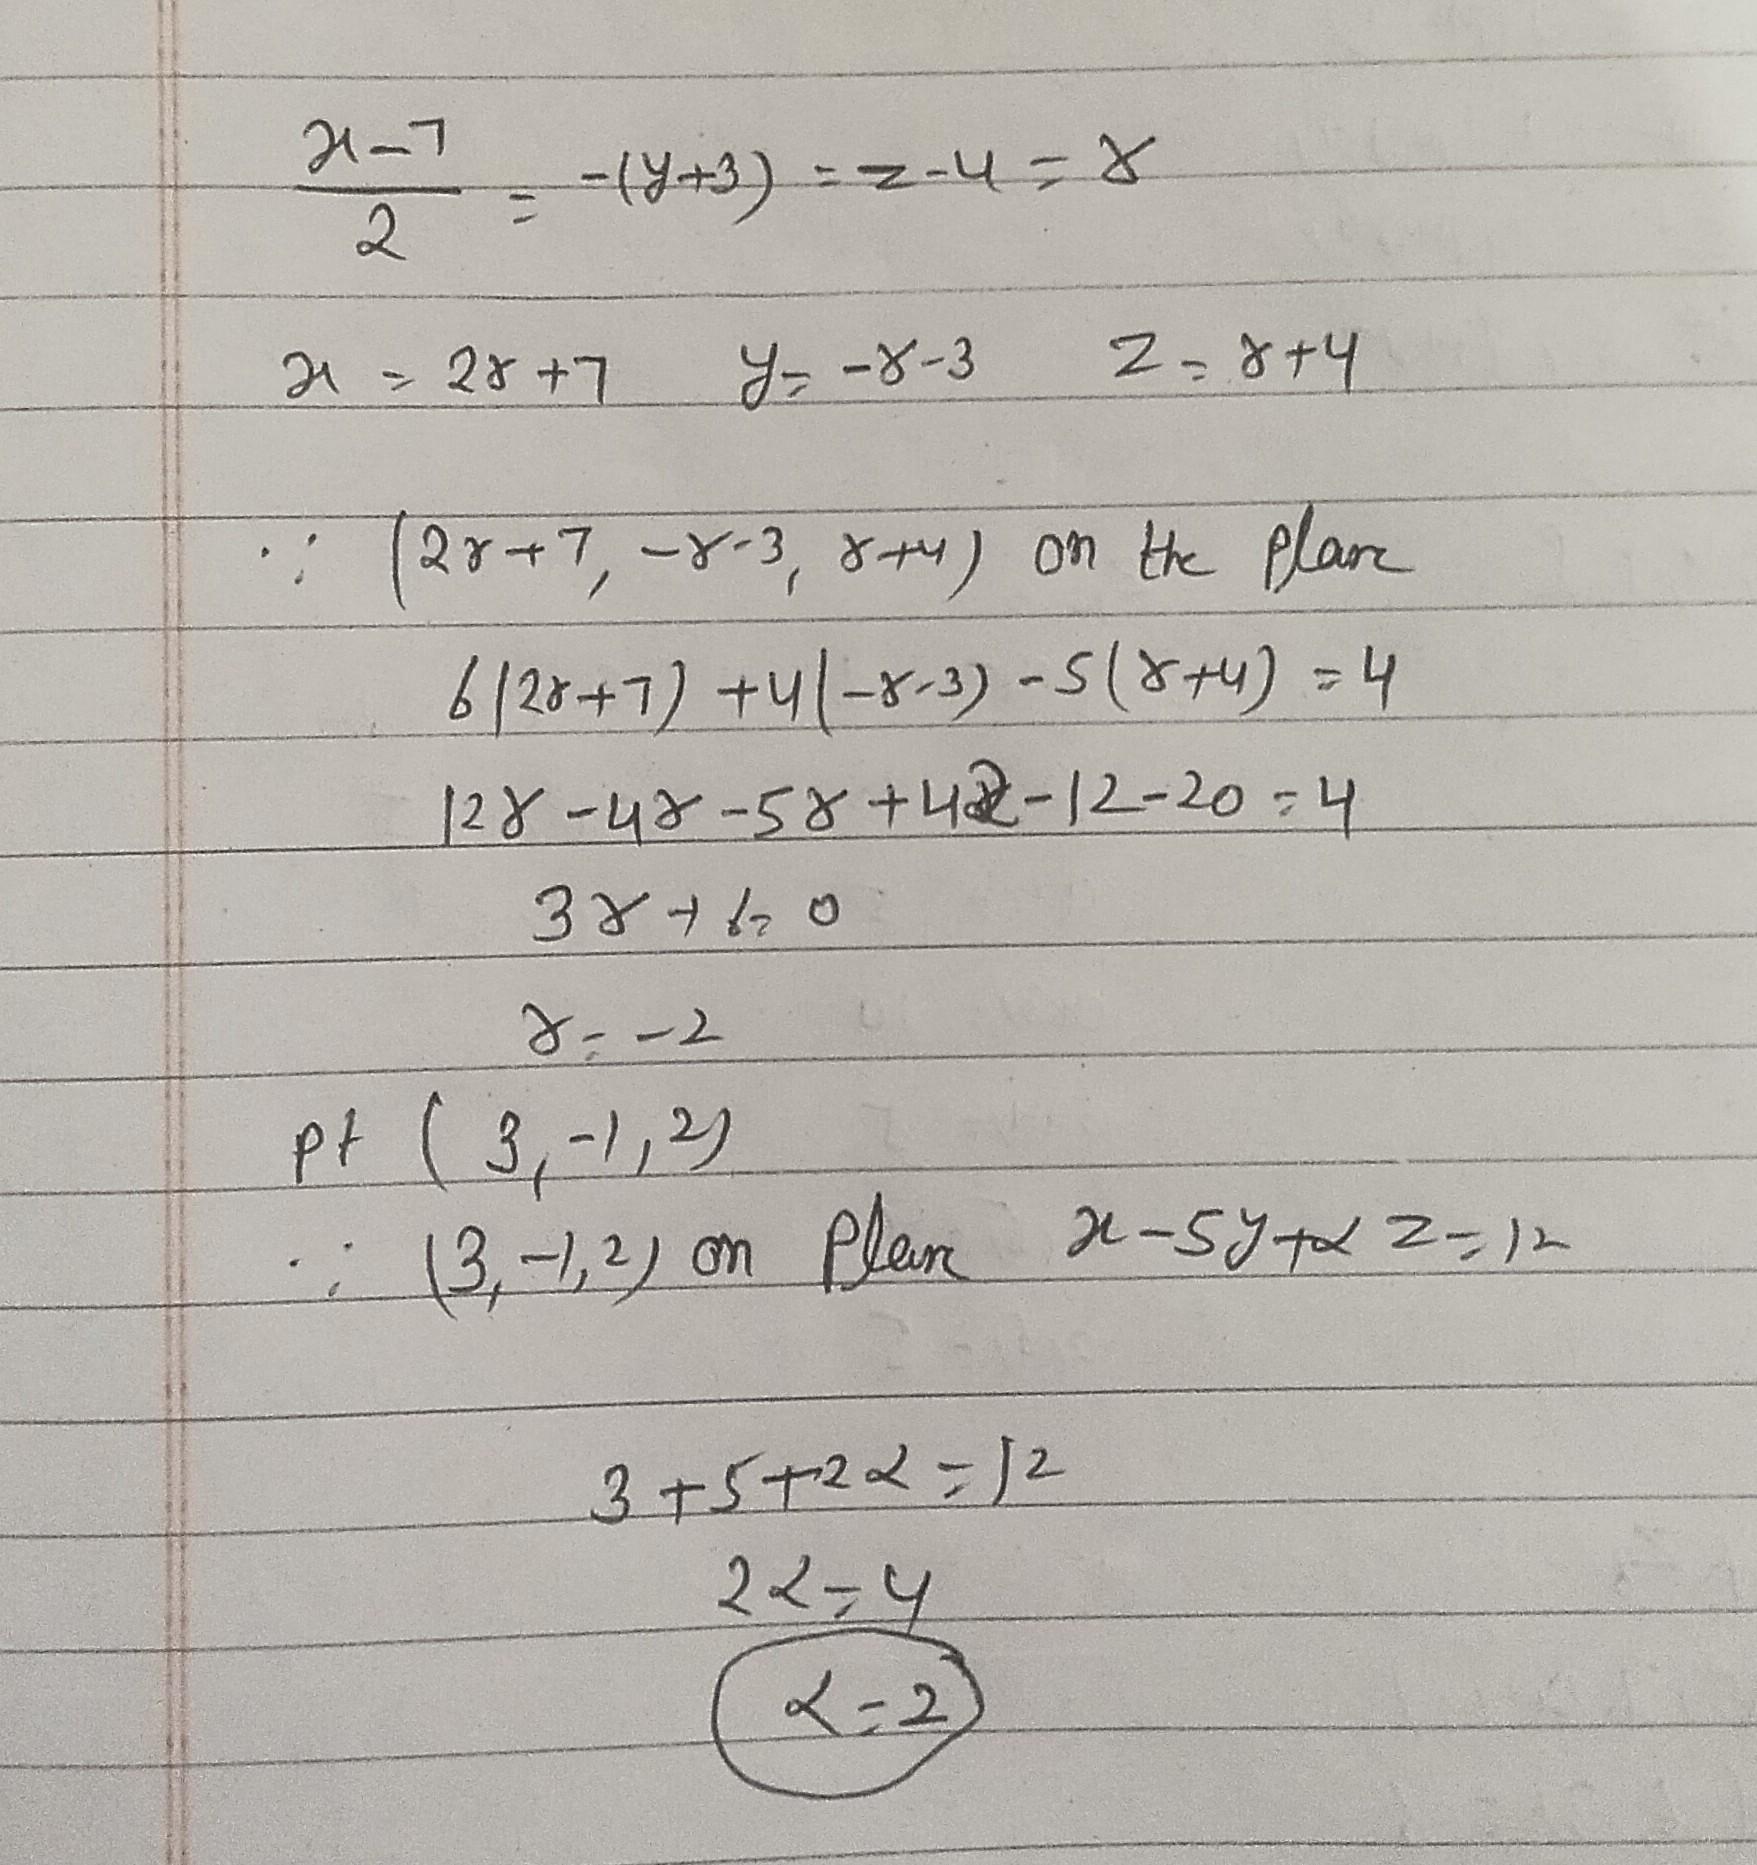 x-7/2 = -(y+3) = z-4 = r
x = 2r+7 y= -r-3 z = r+4
∵ (2r+7, -r-3, r+4) on the plane
6(2r+7) +4(-r-3) -5(r+4) = 4
12r -4r -5r +42 -12-20 = 4
3r + 6 = 0
r = -2
pt (3, -1, 2)
∵ (3, -1, 2) on plane x-5y+αz = 12
3+5+2α = 12
2α = 4
α = 2